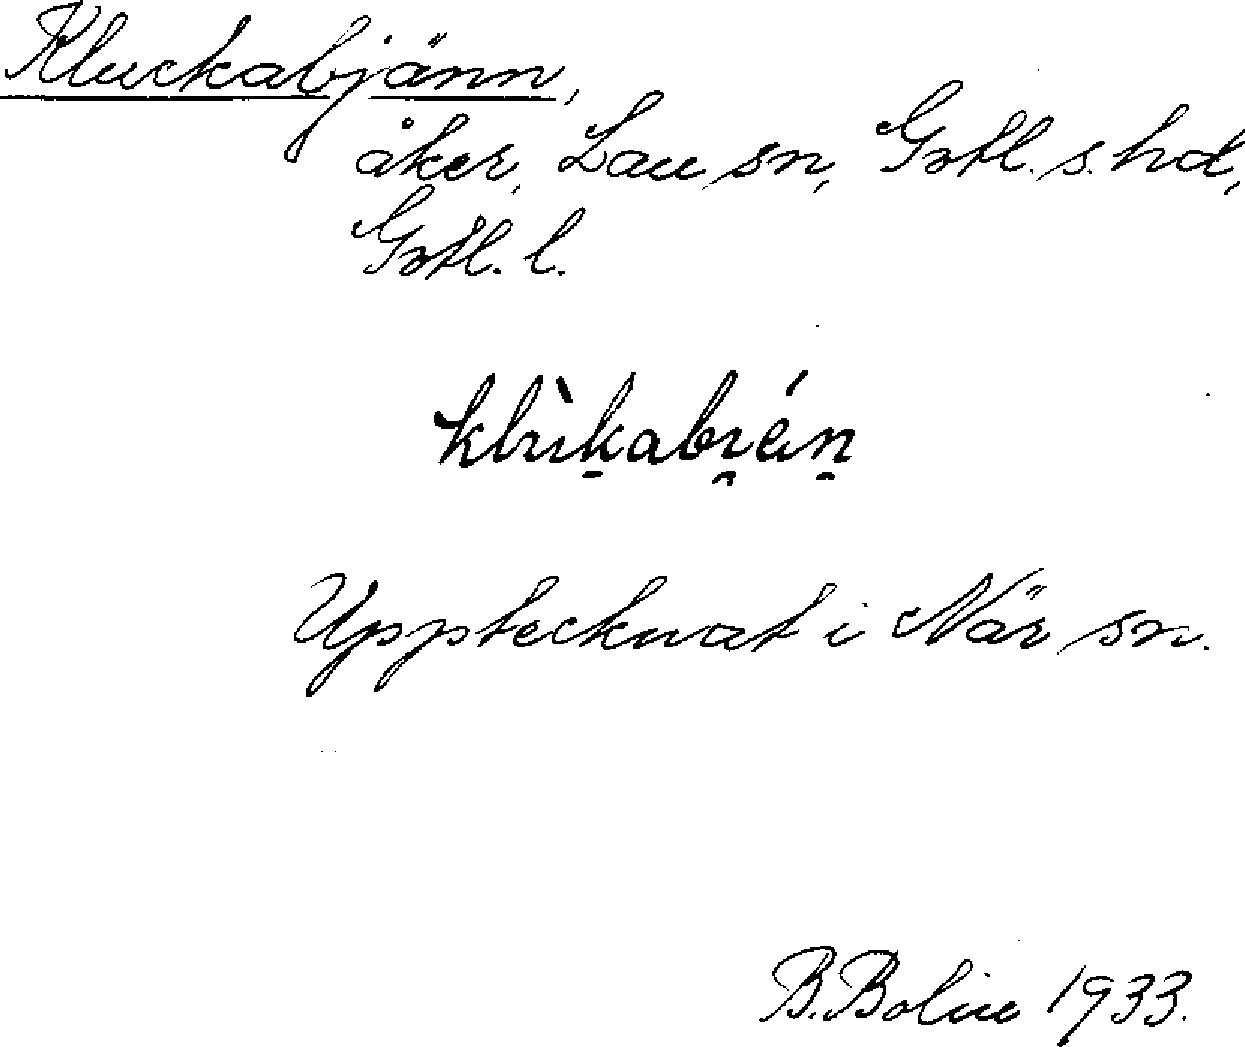 Kluckabjänn,
åker, Lau sn, Gotl. s. hd,
Gotl. l.
klùkabi̯én
Upptecknat i När sn.
B. Bolin 1933.